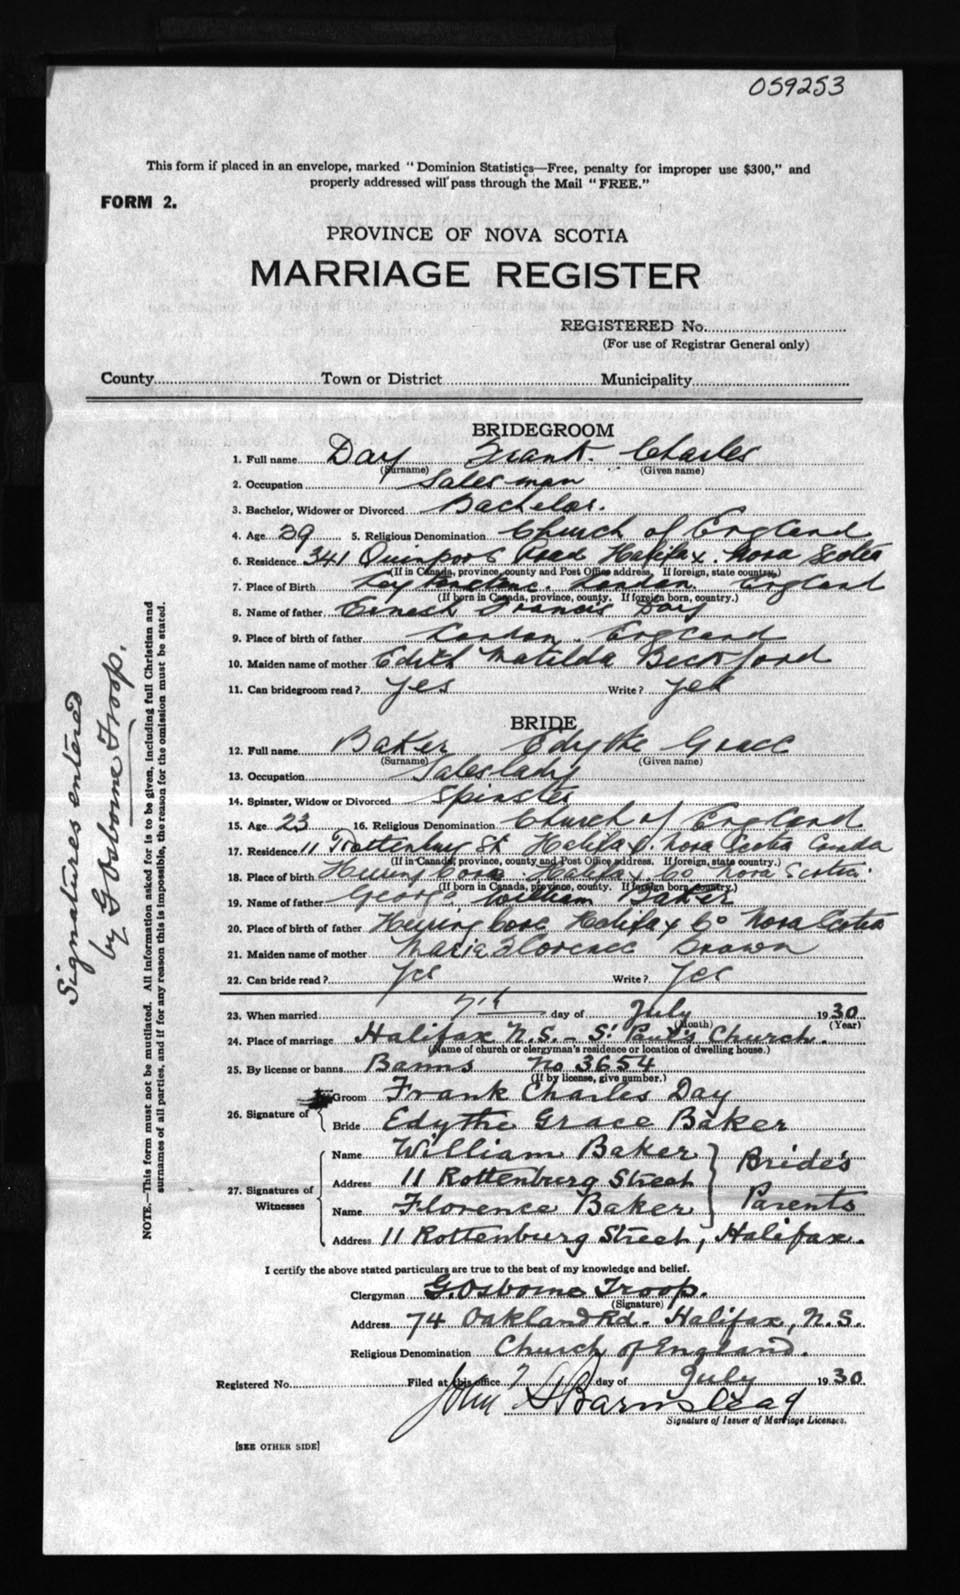 059253
This form if placed in an envelope, marked "Dominion Statistics—Free, penalty for improper use $300," and
properly addressed will pass through the Mail "FREE."
FORM 2.
PROVINCE OF NOVA SCOTIA
MARRIAGE REGISTER
REGISTERED No.
(For use of Registrar General only)
County Town or District Municipality
BRIDEGROOM
1. Full name Day Frank Charles
(Surname) (Given name)
2. Occupation Salesman
3. Bachelor, Widower or Divorced Bachelor.
4. Age 29 5. Religious Denomination Church of England
6. Residence 341 Quinpool Road Halifax. Nova Scotia
(If in Canada, province, county and Post Office address. If foreign, state country.)
7. Place of Birth London. England
(If born in Canada, province, county. If foreign born, country.)
8. Name of father Ernest Francis Day
9. Place of birth of father London. England
10. Maiden name of mother Edith Matilda Beckford
11. Can bridegroom read? Yes Write? Yes
BRIDE
12. Full name Baker Edythe Grace
(Surname) (Given name)
13. Occupation Saleslady
14. Spinster, Widow or Divorced Spinster
15. Age 23 16. Religious Denomination Church of England
17. Residence 11 Rottenburg St Halifax. Nova Scotia Canada
(If in Canada, province, county and Post Office address. If foreign, state country.)
18. Place of birth Herring Cove Halifax Co Nova Scotia.
(If born in Canada, province, county. If foreign born, country.)
19. Name of father George William Baker
20. Place of birth of father Herring Cove Halifax Co Nova Scotia
21. Maiden name of mother Maria Florence Brown
22. Can bride read? Yes Write? Yes
23. When married 7th day of July 1930
(Month) (Year)
24. Place of marriage Halifax N.S. - St Paul's Church.
(Name of church or clergyman's residence or location of dwelling house.)
25. By license or banns Banns No 3654
(If by license, give number.)
26. Signature of Groom Frank Charles Day
Bride Edythe Grace Baker
27. Signatures of Witnesses
Name William Baker Bride's
Address 11 Rottenburg Street
Name Florence Baker Parents
Address 11 Rottenburg Street, Halifax.
I certify the above stated particulars are true to the best of my knowledge and belief.
Clergyman G. Osborne Troop.
(Signature)
Address 74 Oakland Rd. Halifax, N.S.
Religious Denomination Church of England.
Registered No. Filed at this office 7 day of July 1930
John S Barnstead
Signature of Issuer of Marriage Licenses.
[SEE OTHER SIDE]
NOTE.—This form must not be mutilated. All information asked for is to be given, including full Christian and
surnames of all parties, and if for any reason this is impossible, the reason for the omission must be stated.
Signatures entered
by G Osborne Troop.